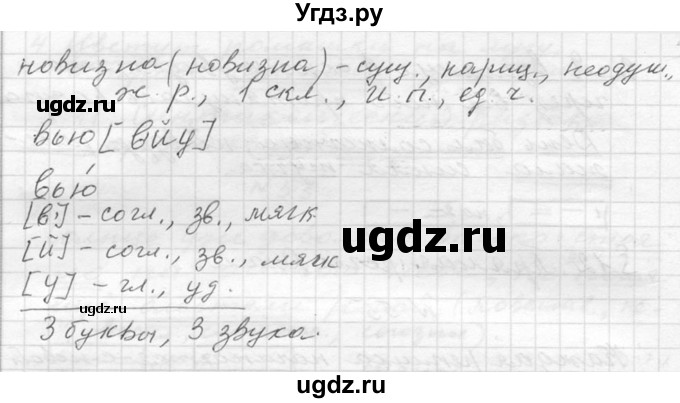 Угдз.ру
новизна (новизна) - сущ., нариц., неодуш.,
ж. р., 1 скл., И. п., ед. ч.
вью [вйу]
вью́
[в'] - согл., зв., мягк
ugdz.ru
[й] - согл., зв., мягк
[у] - гл., уд.
ugdz.ru
ugdz.ru
3 буквы, 3 звука.
ugdz.ru